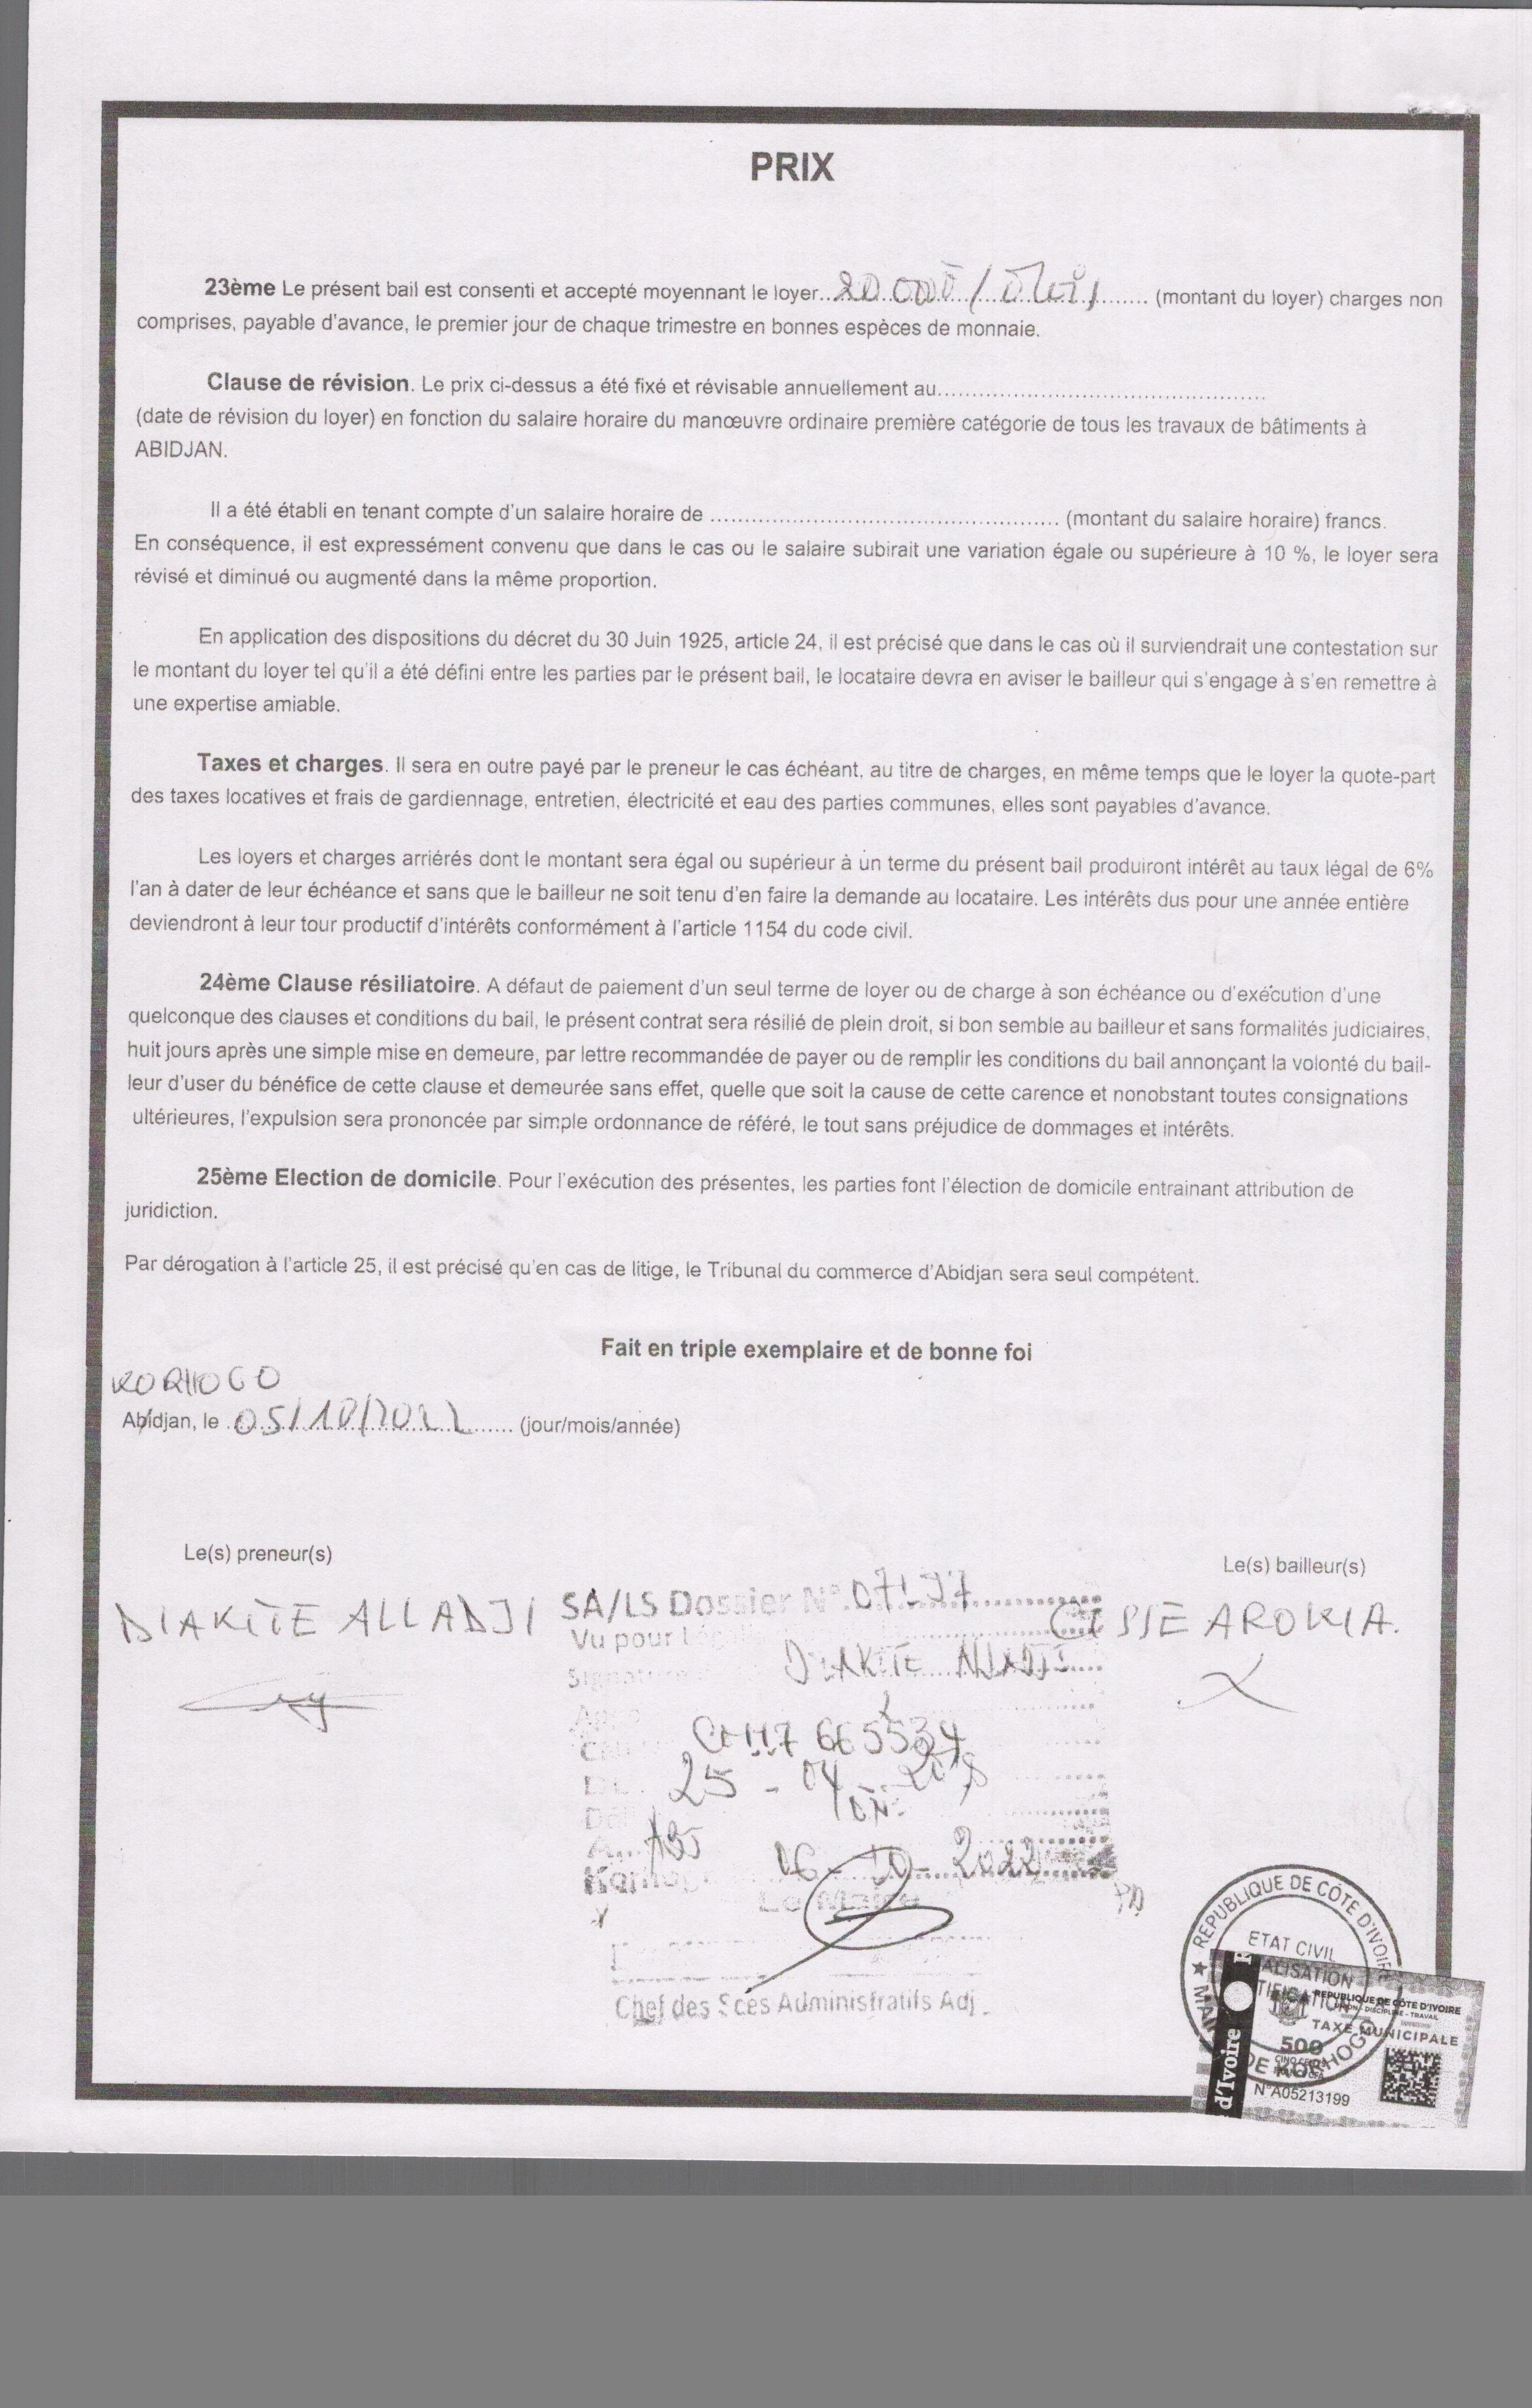 PRIX
23ème Le présent bail est consenti et accepté moyennant le loyer.. 20 000 / mois ........ (montant du loyer) charges non
comprises, payable d'avance, le premier jour de chaque trimestre en bonnes espèces de monnaie.
Clause de révision. Le prix ci-dessus a été fixé et révisable annuellement au................................................
(date de révision du loyer) en fonction du salaire horaire du manœuvre ordinaire première catégorie de tous les travaux de bâtiments à
ABIDJAN.
Il a été établi en tenant compte d'un salaire horaire de .................................................. (montant du salaire horaire) francs.
En conséquence, il est expressément convenu que dans le cas ou le salaire subirait une variation égale ou supérieure à 10 %, le loyer sera
révisé et diminué ou augmenté dans la même proportion.
En application des dispositions du décret du 30 Juin 1925, article 24, il est précisé que dans le cas où il surviendrait une contestation sur
le montant du loyer tel qu'il a été défini entre les parties par le présent bail, le locataire devra en aviser le bailleur qui s'engage à s'en remettre à
une expertise amiable.
Taxes et charges. Il sera en outre payé par le preneur le cas échéant, au titre de charges, en même temps que le loyer la quote-part
des taxes locatives et frais de gardiennage, entretien, électricité et eau des parties communes, elles sont payables d'avance.
Les loyers et charges arriérés dont le montant sera égal ou supérieur à un terme du présent bail produiront intérêt au taux légal de 6%
l'an à dater de leur échéance et sans que le bailleur ne soit tenu d'en faire la demande au locataire. Les intérêts dus pour une année entière
deviendront à leur tour productif d'intérêts conformément à l'article 1154 du code civil.
24ème Clause résiliatoire. A défaut de paiement d'un seul terme de loyer ou de charge à son échéance ou d'exécution d'une
quelconque des clauses et conditions du bail, le présent contrat sera résilié de plein droit, si bon semble au bailleur et sans formalités judiciaires,
huit jours après une simple mise en demeure, par lettre recommandée de payer ou de remplir les conditions du bail annonçant la volonté du bail-
leur d'user du bénéfice de cette clause et demeurée sans effet, quelle que soit la cause de cette carence et nonobstant toutes consignations
ultérieures, l'expulsion sera prononcée par simple ordonnance de référé, le tout sans préjudice de dommages et intérêts.
25ème Election de domicile. Pour l'exécution des présentes, les parties font l'élection de domicile entrainant attribution de
juridiction.
Par dérogation à l'article 25, il est précisé qu'en cas de litige, le Tribunal du commerce d'Abidjan sera seul compétent.
Fait en triple exemplaire et de bonne foi
KORHOGO
Abidjan, le 05/10/2022 ...... (jour/mois/année)
Le(s) preneur(s)
Le(s) bailleur(s)
DIAKITE ALLADJI
SA/LS Dossier N°
CISSE AROKIA.
Vu pour
DIAKITE ALLADJI
25 - 04 -
06 - 10 - 2022
Le Maire
Chef des Sces Administratifs Adj
REPUBLIQUE DE CÔTE D'IVOIRE
ETAT CIVIL
MAIRIE DE KORHOGO
REPUBLIQUE DE CÔTE D'IVOIRE
UNION - DISCIPLINE - TRAVAIL
TAXE MUNICIPALE
500
d'Ivoire
N°A05213199